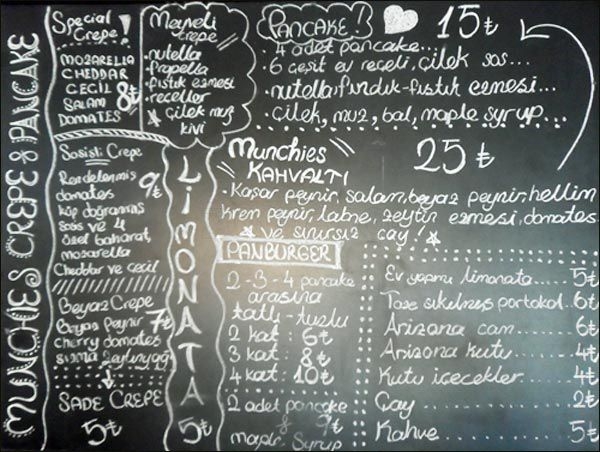 MUNCHIES CREPE & PANCAKE
Special
Crepe!
MOZARELLA
CHEDDAR
CECİL
SALAM
DOMATES
8₺
Sosisli Crepe
Rendelenmiş
domates
küp doğranmış
sosis ve 4
özel baharat,
mozarella
Cheddar ve cecil
9₺
Beyaz Crepe
Beyaz Peynir
cherry domates
sızma zeytinyağ
7₺
SADE CREPE
5₺
Meyveli
crepe
• nutella
• frapella
• fıstık ezmesi
• receller
• çilek muz
kivi
LİMONATA
5₺
PANCAKE! 15₺
• 4 adet pancake...
• 6 çeşit ev receli, çilek sos...
• nutella fındık-fıstık ezmesi...
• çilek, muz, bal, maple syrup...
Munchies
KAHVALTI
25₺
• Kaşar peynir, salam, beyaz peynir, hellim
krem peynir, labne, zeytin ezmesi, domates
ve sınırsız çay!
PANBURGER
2-3-4 pancake
arasına
tatlı-tuzlu
2 kat: 6₺
3 kat: 8₺
4 kat: 10₺
2 adet pancake
& 9₺
maple Syrup
Ev yapımı limonata..... 5₺
Taze sıkılmış portakal.. 6₺
Arizona cam......... 6₺
Arizona kutu........ 4₺
Kutu icecekler...... 4₺
Çay............... 2₺
Kahve............. 5₺